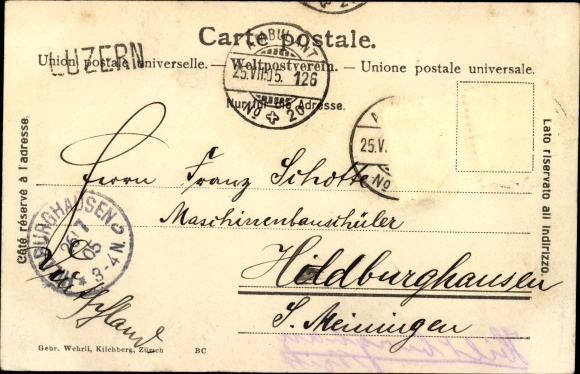 Carte postale.
Union postale universelle. — Weltpostverein. — Unione postale universale.
Nur für die Adresse.
LUZERN
AMBULANT
25.VII.05. 126
No 20
25.V
No
Côté réservé à l'adresse.
Lato riservato all indirizzo.
Herrn Franz Schotte
Maschinenbauschüler
Hildburghausen
S. Meiningen
BURGHAUSEN
26 7
05
3-4 N.
Gebr. Wehrli, Kilchberg, Zürich BC